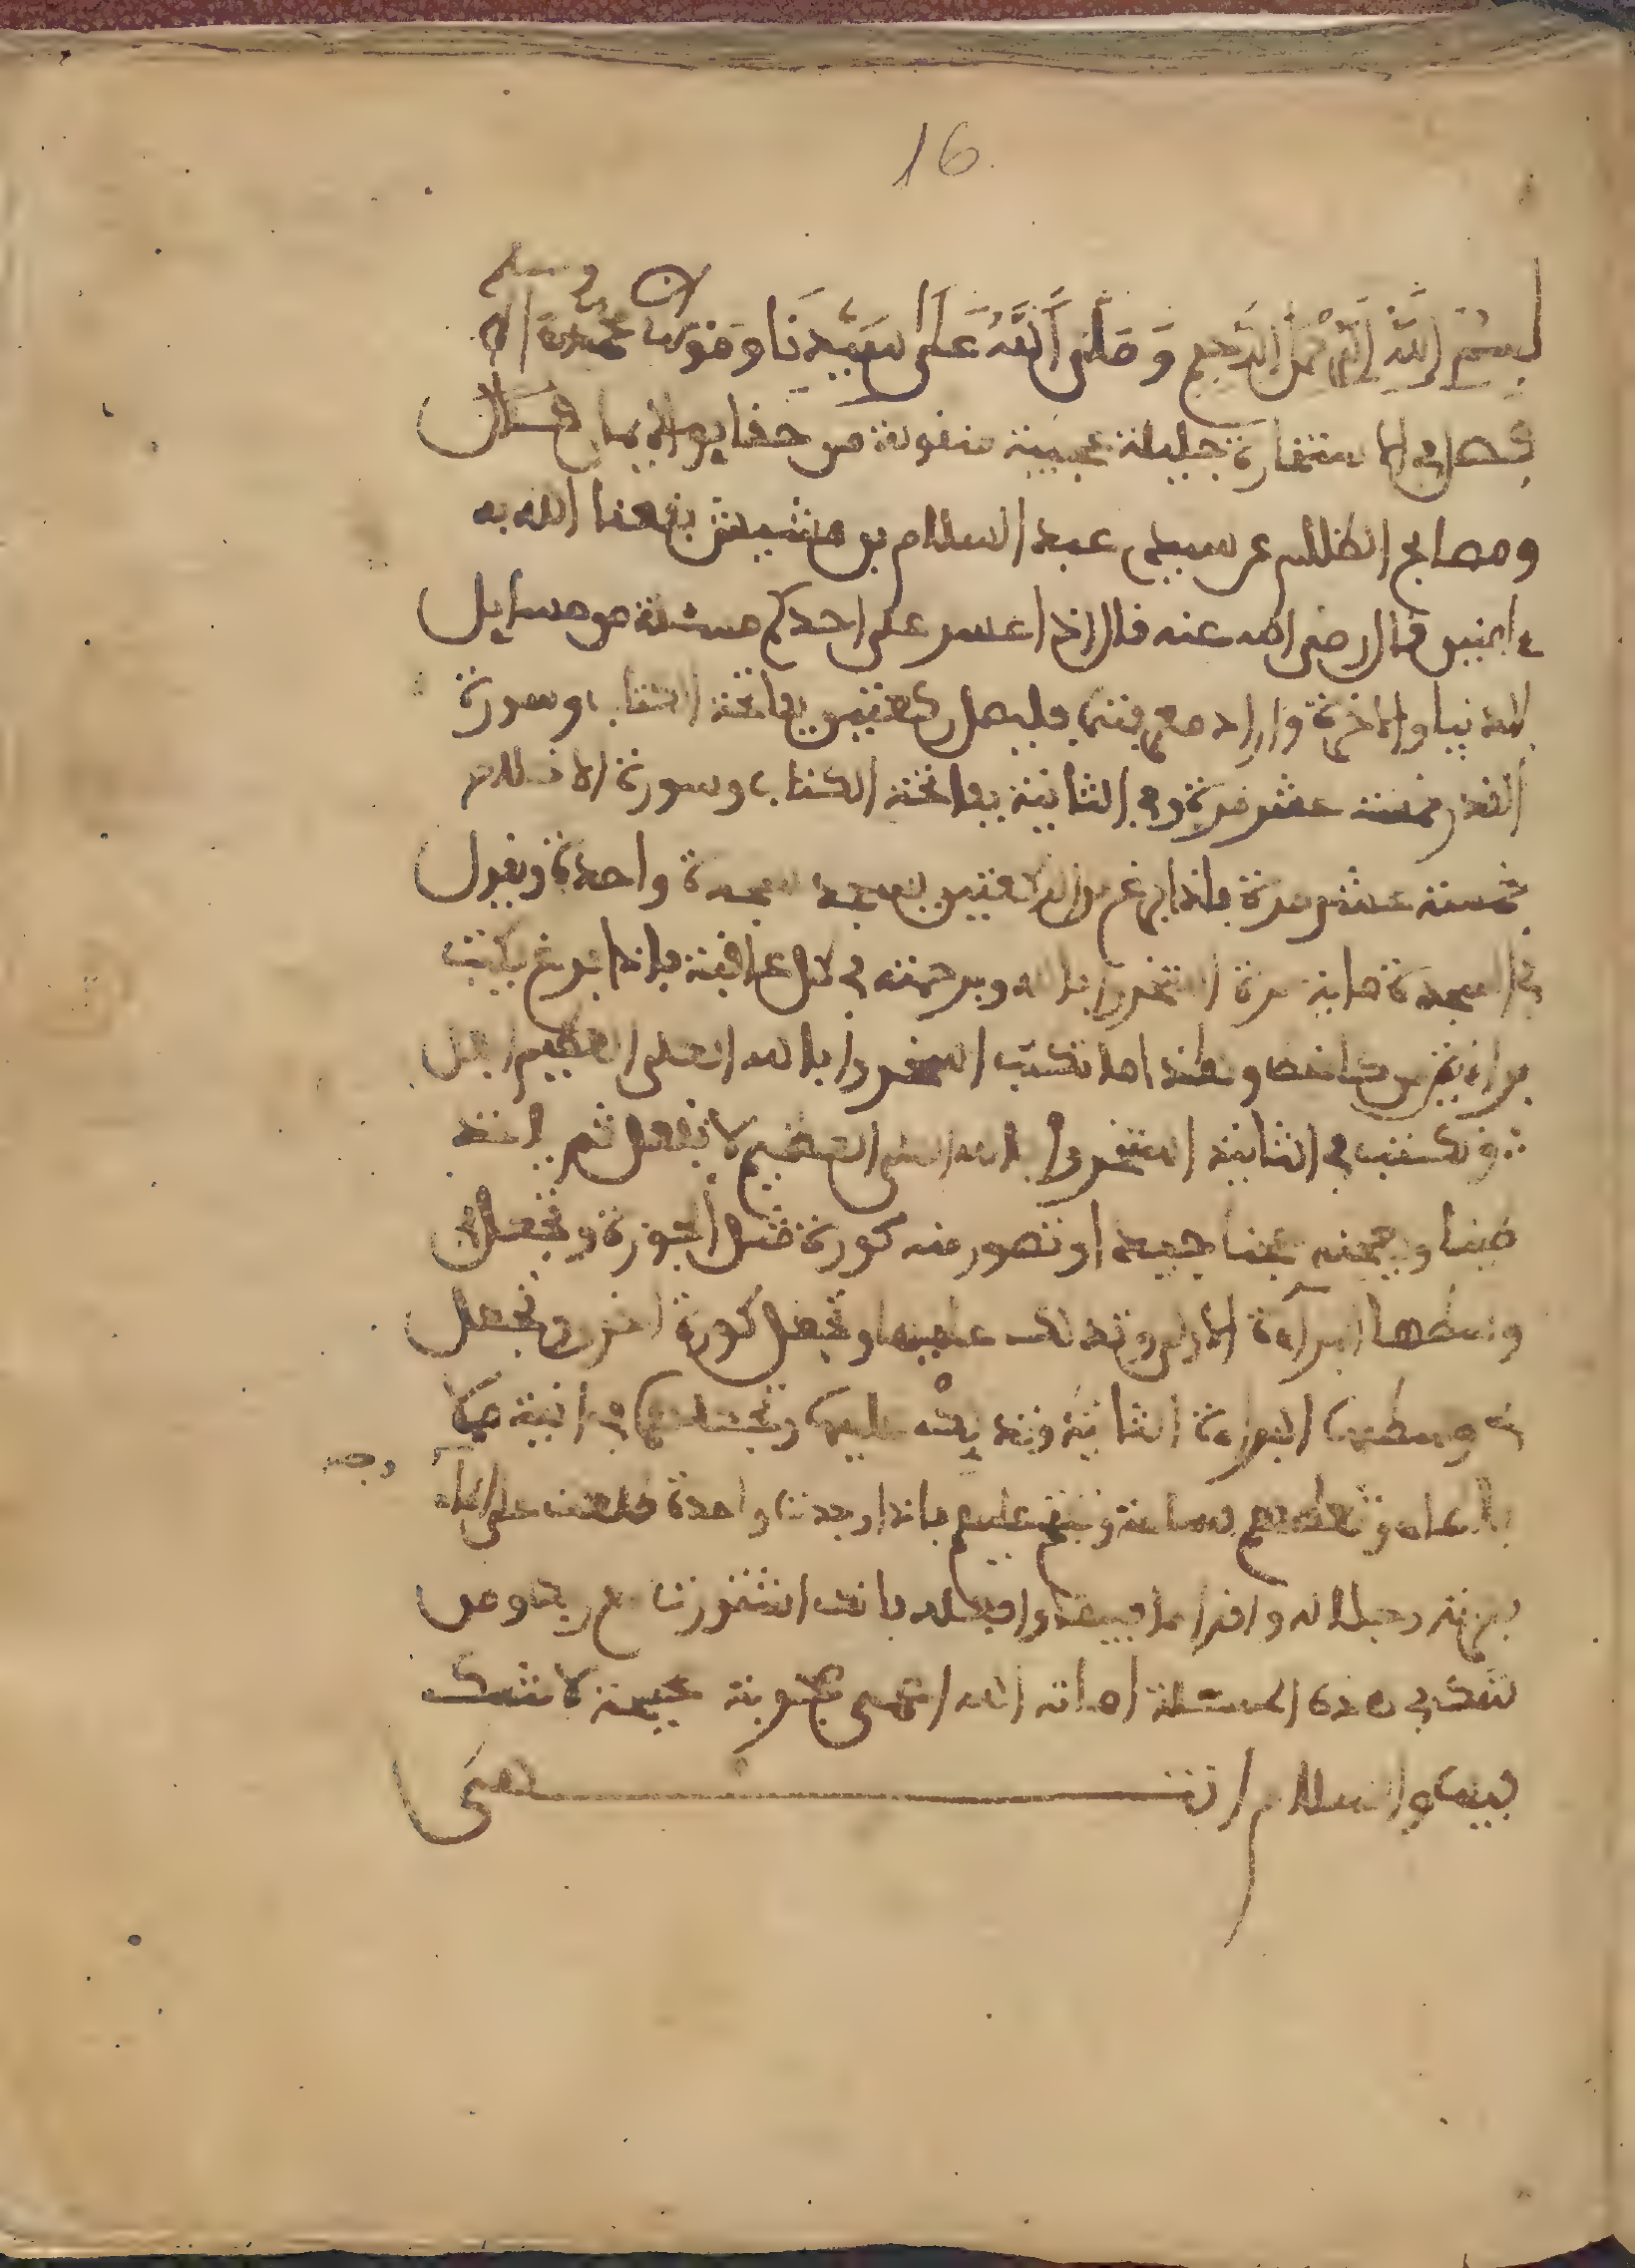 16
بسم الله الرحمن الرحيم وصلى الله على سيدنا ومولانا محمد وآله وسلم
فصل في الاستخارة جليلة عجيبة منقولة من حقايق الايمان
ومصابح الظلام عن سيدي عبد السلام بن مشيش نفعنا الله به
ءامين قال رضي الله عنه قال اذا عسر على احدكم مسئلة من مسايل
الدنيا والاخرة واراد معرفتها فليصل ركعتين بفاتحة الكتاب وسورة
القدر خمسة عشر مرة وفي الثانية بفاتحة الكتاب وسورة الاخلاص
خمسة عشر مرة فاذا فرغ من الركعتين يسجد سجدة واحدة ويقول
في السجدة مائة مرة استخرت بالله وبرحمته في كل عافية فاذا فرغ يكتب
براءتين تكتب استخرت بالله العلي العظيم افعل
وتكتب في الثانية استخرت بالله العلي العظيم لا تفعل ثم ياخذ
طينا ويعجنه عجنا جيدا وتصور منه كورة مثل الجوزة وتجعل في
وسطها البراءة الاولى وتدلك عليها وتجعل كورة اخرى وتجعل
في وسطها البراءة الثانية وتدلك عليها وتجعلها في انية ملا
بالماء وتغطيهم ساعة وتفتح عليهم فاذا وجدت واحدة طلعت على وجه الماء
بسم الله واقرا ما فيها وافعله فانك استخرت مع ربك ومن
شك في هذه المسئلة اماته الله اعمى مجروبة صحيحة لا شك
فيها والسلام انتهى